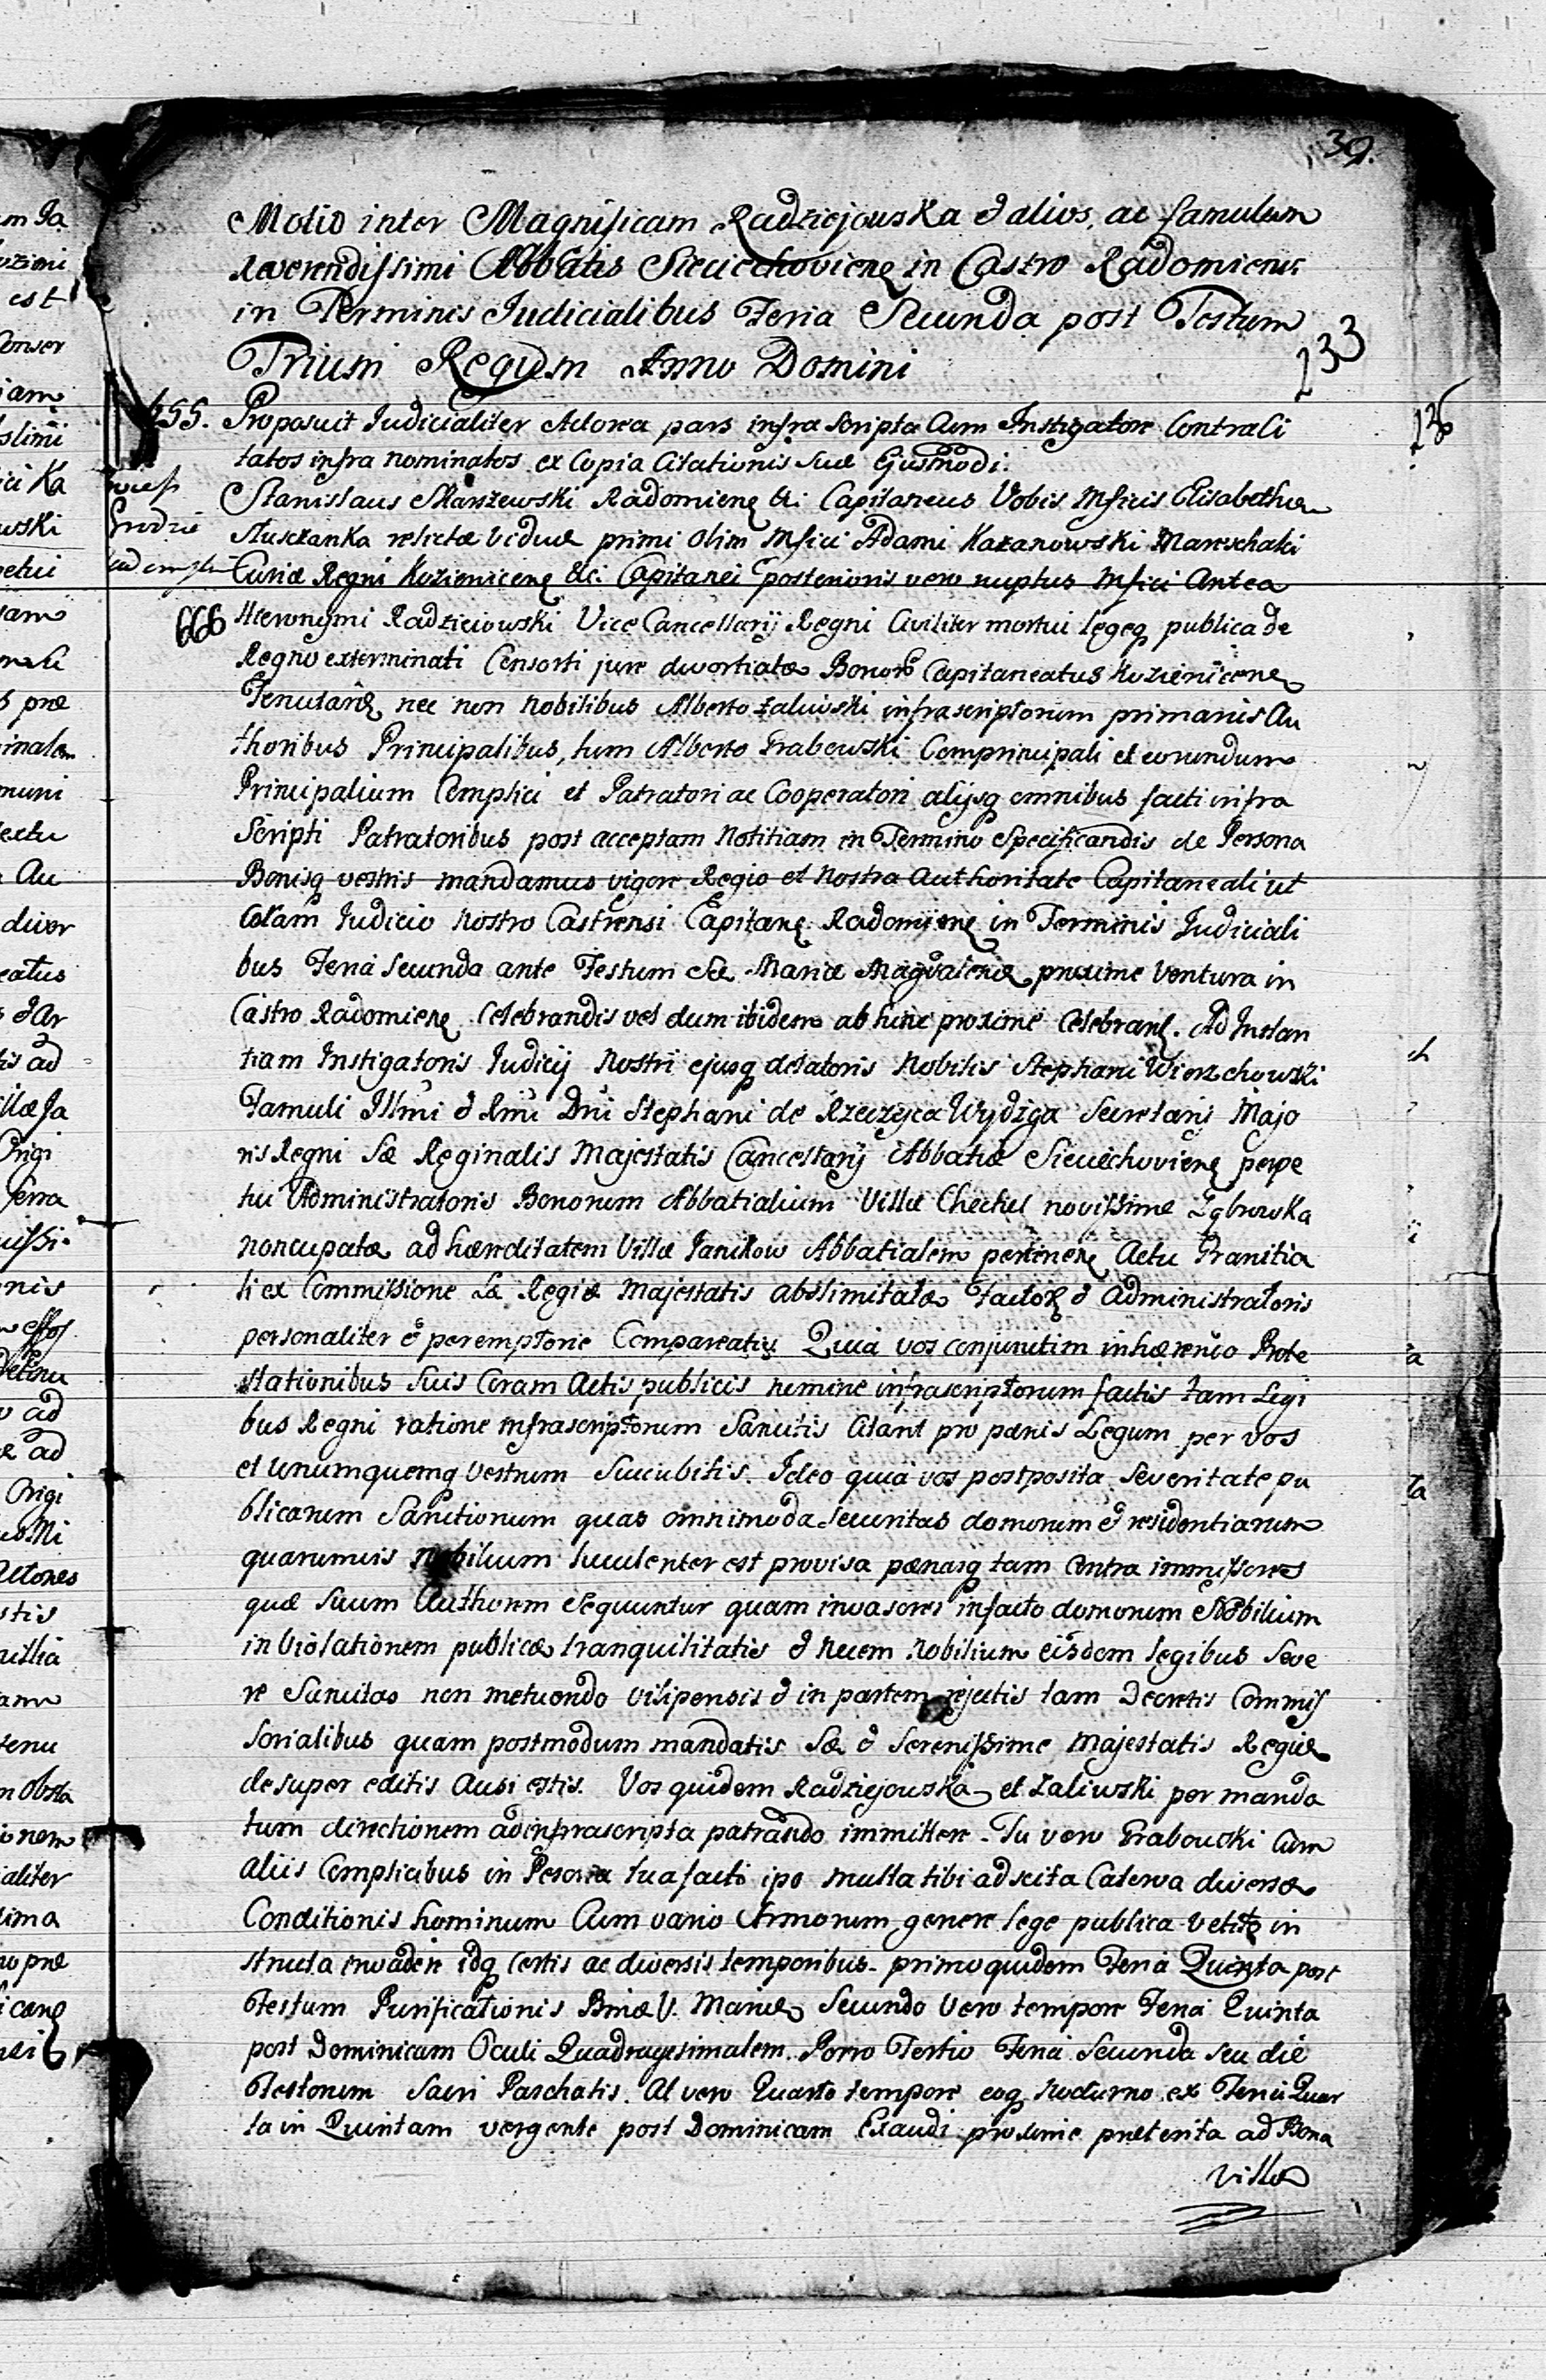 39.
Motio inter Magnificam Radziejouska & alios, ac famulum
Reverendissimi Abbatis Sieciechoviens in Castro Radomiens
in Terminis Judicialibus Feria Secunda post Festum
Trium Regum Anno Domini
233
655. Proposuit Judicialiter Actorea pars infra scripta Cum Instigatore Contra Ci
tatos infra nominatos ex Copia Citationis Suae Ejusmodi.
Stanislaus Skarszewski Radomiens &c: Capitaneus Vobis Mficis Elisabethae
Sluszkanka relictae viduae primi olim Mfici Adami Kazanowski Mareschalci
Curiae Regni Kozieniciens &c: Capitanei posterioris vero nuptus Mfici Antea
666 Hieronymi Radzieiowski Vice Cancellarij Regni Civiliter mortui legeq publica de
Regno exterminati Consorti jure divortiatae Bonorũ Capitaneatus Kozieniciens
Tenutariae nec non Nobilibus Alberto Zaliwski infrascriptorum primariis Au
thoribus Principalibus, tum Alberto Grabowski Comprincipali et eorundum
Principalium Complici et Patratori ac Cooperatori alijsq omnibus facti infra
Scripti Patratoribus post acceptam Notitiam in Termino Specificandis de Persona
Bonisq vestris mandamus vigore Regio et Nostra Authoritate Capitaneali ut
Coram Judicio Nostro Castrensi Capitane Radomiens in Terminis Judiciali
bus Feria Secunda ante Festum Sae Mariae Magdalenae proxime ventura in
Castro Radomiens Celebrandis vel dum ibidem ab hinc proxime Celebran. Ad Instan
tiam Instigatoris Judicij Nostri ejusq delatoris Nobilis Stephani Wierzchowski
Famuli Illmi & Rmi Dni Stephani de Rzeczyca Wydzga Secretarij Majo
ris Regni Sae Reginalis Majestatis Cancellarij Abbatiae Sieciechoviens perpe
tui Administratoris Bonorum Abbatialium Villae Chechel novissime Zgbrowka
noncupatae ad haereditatem Villae Janikow Abbatialem pertinen Actu Granitia
li ex Commissione Sae Regiae Majestatis abslimitatae Factor & Administratoris
personaliter & peremptorie Compareatis Quia vos conjunctim inhaerendo Prote
stationibus Suis Coram Actis publicis nomine infrascriptorum factis tam Legi
bus Regni ratione infrascriptorum Sancitis Citant pro paenis Legum per vos
et unumquemq vestrum Succubitis. Ideo quia vos postposita Severitate pu
blicarum Sanctionum quas omnimoda Securitas domorum & residentiarum
quarumvis nobilium luculenter est provisa paenasq tam Contra immissores
quae Suum Authorem Sequuntur quam invasores infacto domorum Nobilium
in Violationem publicae tranquilitatis & Necem Nobilium eisdem legibus Seve
re Sancitas non metuendo vilipensis & in partem rejectis tam Decretis Commis
sorialibus quam postmodum mandatis Sae & Serenissime Majestatis Regiae
desuper editis Ausi estis. Vos quidem Radziejouska et Zaliwski per manda
tum directionem ad infrascripta patrando immittere. Tu vero Grabowski Cum
aliis Complicibus in Persona tua facto ipo multa tibi adscita Caterva diversae
Conditionis hominum Cum vario Armorum genere lege publica Vetito in
structa invadere idq certis ac diversis temporibus. primo quidem Feria Quinta post
Festum Purificationis Bmae V. Mariae Secundo vero tempore Feria Quinta
post Dominicam Oculi Quadragesimalem. Porro Tertio Feria Secunda Seu die
Festorum Sacri Paschatis. At vero Quarto tempore eoq Nocturno ex Feria Quar
ta in Quintam vergente post Dominicam Exaudi proxime praeterita ad Bona
Villae